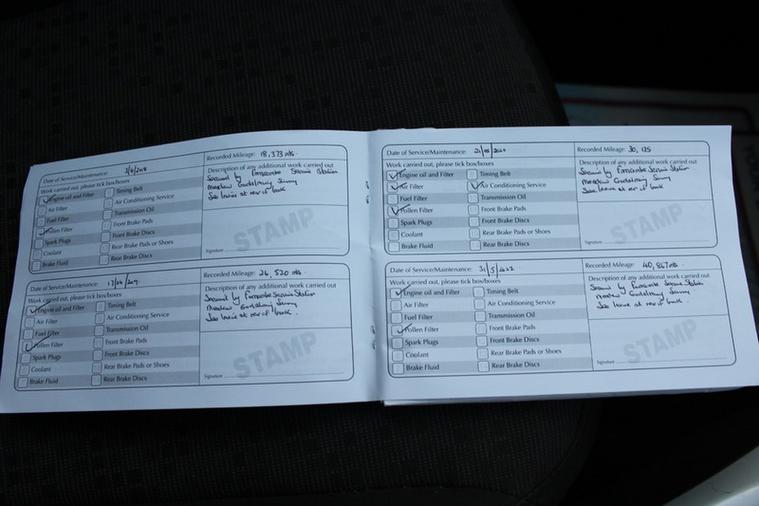 Date of Service/Maintenance:
Recorded Mileage: 18,373 mls.
Work carried out, please tick box/boxes
Description of any additional work carried out
Engine oil and Filter
Timing Belt
Air Filter
Air Conditioning Service
Fuel Filter
Transmission Oil
Pollen Filter
Front Brake Pads
Spark Plugs
Front Brake Discs
Coolant
Rear Brake Pads or Shoes
Brake Fluid
Rear Brake Discs
Serviced by Service Station
Signature
STAMP
Date of Service/Maintenance:
Recorded Mileage: 26,520 mls
Work carried out, please tick box/boxes
Description of any additional work carried out
Engine oil and Filter
Timing Belt
Air Filter
Air Conditioning Service
Fuel Filter
Transmission Oil
Pollen Filter
Front Brake Pads
Spark Plugs
Front Brake Discs
Coolant
Rear Brake Pads or Shoes
Brake Fluid
Rear Brake Discs
Serviced by Service Station
Signature
STAMP
Date of Service/Maintenance:
Recorded Mileage: 30,125
Work carried out, please tick box/boxes
Description of any additional work carried out
Engine oil and Filter
Timing Belt
Air Filter
Air Conditioning Service
Fuel Filter
Transmission Oil
Pollen Filter
Front Brake Pads
Spark Plugs
Front Brake Discs
Coolant
Rear Brake Pads or Shoes
Brake Fluid
Rear Brake Discs
Serviced by Service Station
Signature
STAMP
Date of Service/Maintenance: 31/5/2022
Recorded Mileage: 40,867 mls.
Work carried out, please tick box/boxes
Description of any additional work carried out
Engine oil and Filter
Timing Belt
Air Filter
Air Conditioning Service
Fuel Filter
Transmission Oil
Pollen Filter
Front Brake Pads
Spark Plugs
Front Brake Discs
Coolant
Rear Brake Pads or Shoes
Brake Fluid
Rear Brake Discs
Serviced by Service Station
Signature
STAMP